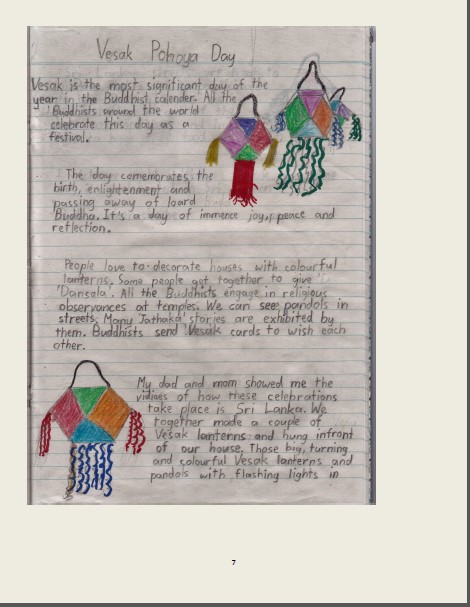 Vesak Pohoya Day
Vesak is the most significant day of the
year in the Buddhist calender. All the
Buddhists around the world
celebrate this day as a
festival.
The day comemorates the
birth, enlightenment and
passing away of loard
Buddha. It's a day of immence joy, peace and
reflection.
People love to decorate houses with colourful
lanterns. Some people get together to give
'Dansala'. All the Buddhists engage in religious
observances at temples. We can see pandols in
streets. Many Jathaka stories are exhibited by
them. Buddhists send Vesak cards to wish each
other.
My dad and mom showed me the
of how these celebrations
take place is Sri Lanka. We
together made a couple of
Vesak lanterns and hung infront
of our house. Those big, turning
and colourful Vesak lanterns and
pandols with flashing lights in
7